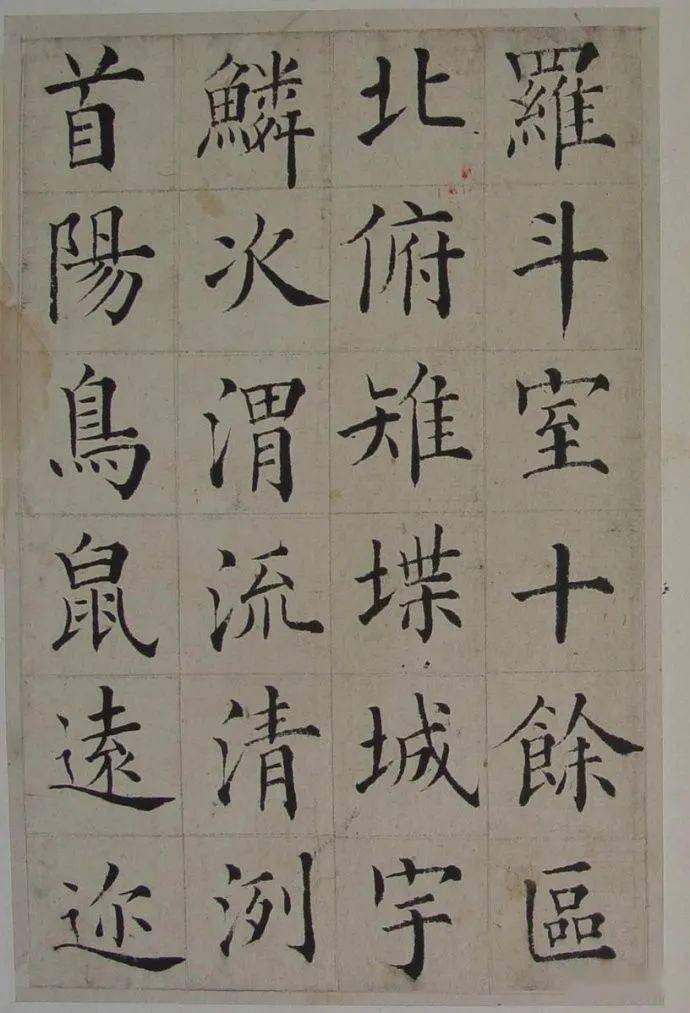 羅斗室十餘區
北俯雉堞城宇
鱗次渭流清洌
首陽鳥鼠遠迩